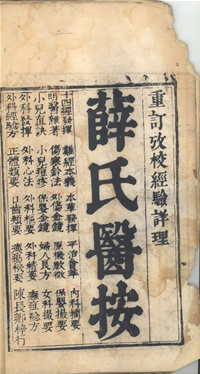 重訂攷校經驗詳理
薛氏醫按
內科摘要
保嬰撮要
女科撮要
陳長卿梓行
平治會萃
原機啟微
婦人良方
外科精要
癰疽驗方
本草發揮
外傷金鏡
保嬰金鏡
外科樞要
口齒類要
難經本義
傷寒鈐法
小兒痘疹
外科心法
正體類要
十四經發揮
明醫雜著
小兒直訣
外科發揮
外科經驗方